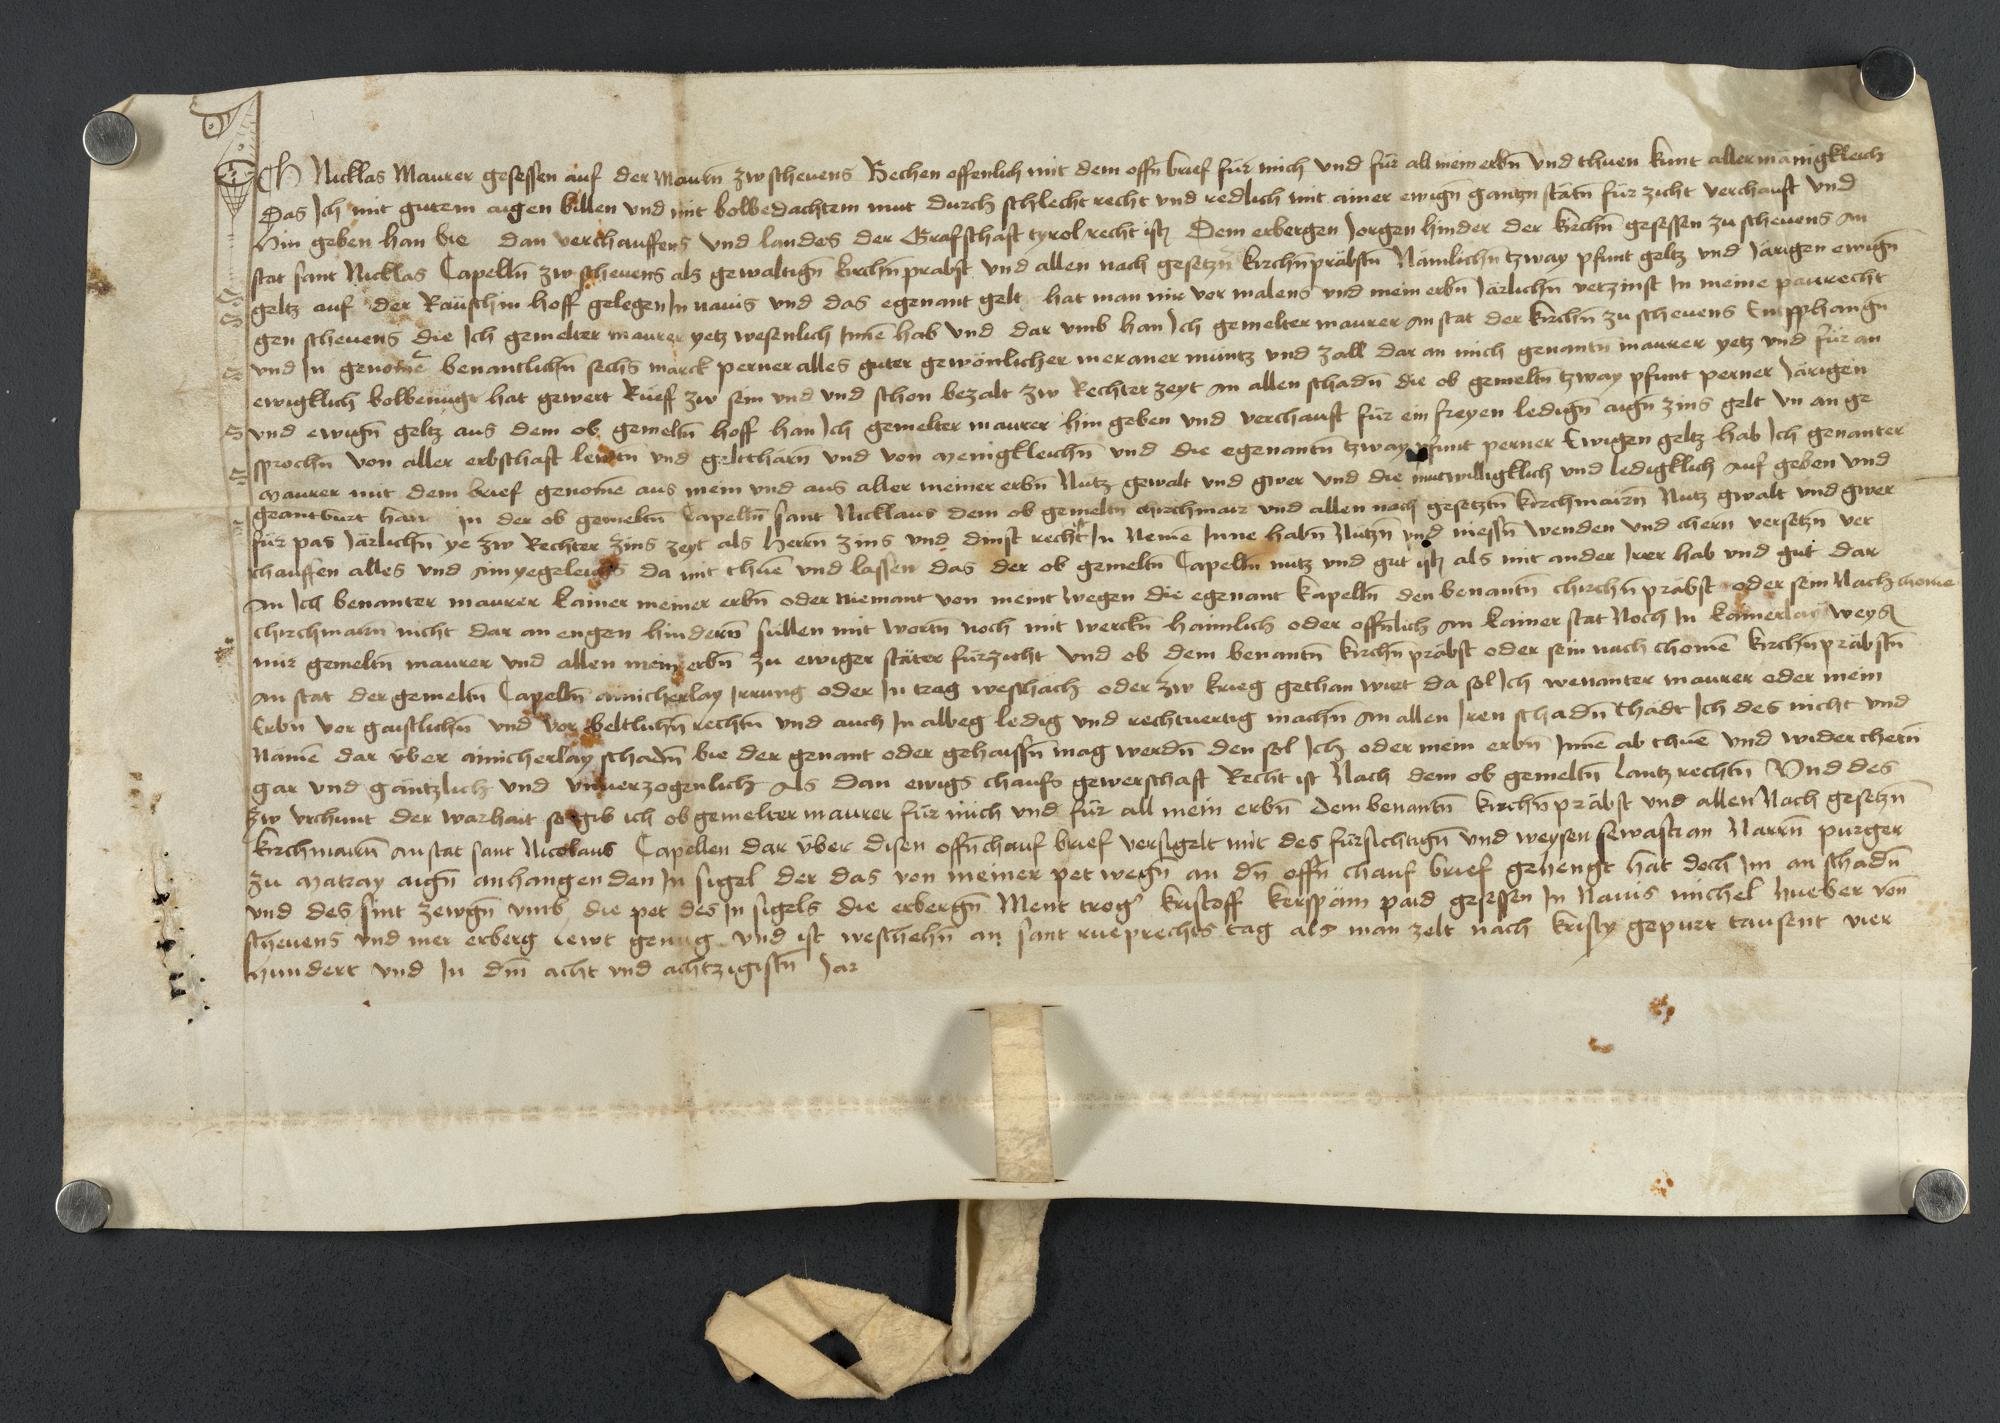 Ich Nicklas Maurer gesessen auf der Maurn zw schevens Bechen offenlich mit dem offn̄ brief für mich vnd für all mein erbn̄ vnd thuen kunt aller mänigkleich
Das Ich mit gutem aigen billen vnd mit bolbedachtem mut durch schlecht recht vnd redlich mit ainer ewign̄ gantzn stätn̄ für zicht verchauft vnd
hin geben han bie dan verchauffens vnd landes der Grafschaft tyrol recht ist Dem erbergen Jorgen hinder der kirchn̄ gesessen zu schevens An
stat sant Nicklas Capelln̄ zw schevens als gewaltign̄ kirchn̄ prabst vnd allen nach gesetzn̄ kirchn̄präbstn̄ Nämlichn̄ tzway pfunt geltz vnd Järigen ewign̄
geltz auf der Räuschin hoff gelegen In navis vnd das egenant gelt hat man mir vor malens vnd mein erbn̄ Järlichn̄ vetzinst In meine paurecht
gen schevens die Ich gemelter maurer yetz wesenlich Inne hab vnd dar vmb han Ich gemelter maurer An stat der kirchn̄ zu schevens Entpphangn̄
vnd In genome benantlichn̄ sechs marck perner alles guter gewönlicher meraner müntz vnd zall dar an mich genantn̄ maurer yetz vnd für an
ewigklich bolbenügt hat gewert Rüeff zw sein vnd vnd schon bezalt zw Rechter zeyt An allen schadn̄ die ob gemeltn̄ tzway pfunt perner Järigen
vnd ewign̄ geltz aus dem ob gemeltn̄ hoff han Ich gemelter maurer hin geben vnd verchauft für ein freyen ledign̄ aign̄ zins gelt vn an ge
sprochn̄ von aller erbschaft lewtn vnd geltthärn vnd von menigkleichn̄ vnd die egenantn̄ tzway pfunt perner Ewigen geltz hab Ich genanter
Maurer mit dem brief genomē aus mein vnd aus aller meiner erbn̄ Nutz gewalt vnd gwer vnd die mutwilligklich vnd ledigklich Auf geben vnd
geantburt han In der ob gemeltn̄ Capelln̄ sant Nicklaus dem ob gemeltn̄ chirchmair vnd allen nach gesetztn̄ kirchmairn̄ Nutz gwalt vnd gwer
für pas Järlichn̄ ye zw Rechter zins zeyt als herrn zins vnd dinst recht In Nemē Inne habn̄ Nutzn̄ vnd niessn̄ wenden vnd chern versetzn̄ ver
chauffen alles vnd Ainyegeleichs da mit thuē vnd lassen das der ob gemeltn̄ Capelln̄ nutz vnd gut ist als mit ander Irer hab vnd gut dar
An Ich benanter maurer kainer meiner erbn̄ oder niemant von meint wegen die egenant kapelln̄ den benantn̄ chirchn̄ präbst oder sein Nach chomē
chirchmairn̄ nicht dar an engen hindern̄ süllen mit wortn̄ noch mit werckn̄ haimlich oder offn̄lich An kainer stat Noch In kainerlay weys
mir gemeltn̄ maurer vnd allen mein erbn̄ zu ewiger stäter fürzicht vnd ob dem benantn̄ kirchn̄ präbst oder sein nach chomē kirchn̄präbstn̄
An stat der gemeltn̄ Capelln̄ ainicherlay Irrung oder In trag weschäch oder zw krieg gethan wirt da sol Ich wenanter maurer oder mein
Erbn̄ vor gaistlichn̄ vnd vor beltlichn̄ rechtn̄ vnd auch In albeg ledig vnd rechtuertig machn̄ An allen Iren schadn̄ thädt Ich des nicht vnd
Namē dar über ainicherlay schadn̄ bie der genant oder gehaissn̄ mag werdn̄ den sol Ich oder mein erbn̄ Inne ab thuē vnd widerchern̄
gar vnd gäntzlich vnd vnuerzogenlich Als dan ewigs chaufs gewerschaft Recht ist Nach dem ob gemeltn̄ lantzrechtn̄ Vnd des
zw vrchunt der warhait so gib ich ob gemelter maurer für mich vnd für all mein erbn̄ dem benantn̄ kirchn̄präbst vnd allen Nach gesetzn̄
kirchmairn̄ An stat sant Nicolaus Capellen dar über disen offn̄ chauf brief versigelt mit des fürsichtign̄ vnd weysen sewastian Narrn̄ purger
zu Matray aign̄ anhangenden In sigel der das von meiner pet wegn̄ an dn̄ offn̄ chauf brief gehengt hat doch Im an schadn̄
vnd des sint zewgn̄ vmb die pet des In sigels die erbergn̄ Ment trog' kristoff kerspäm paid gesessen In Navis michel hueber von
schevens vnd mer erberg lewt genug vnd ist weschehn̄ an sant rueprechts tag als man zelt nach kristy gepurt tausent vier
hundert vnd In dm̄ acht vnd achtzigistn̄ Jar